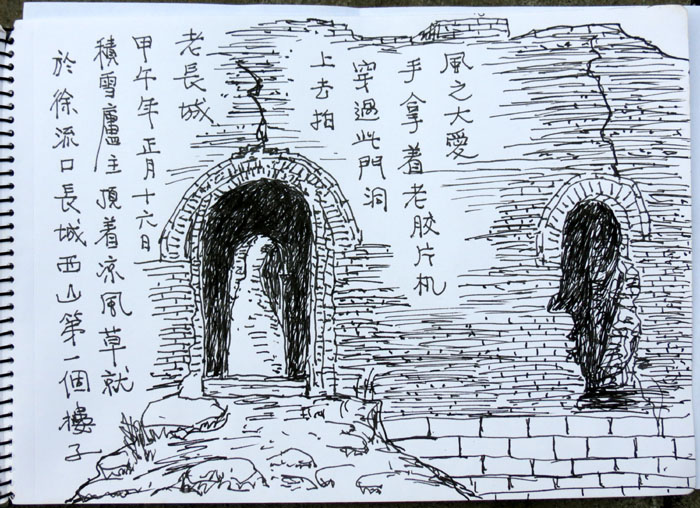 風之大愛
手拿着老胶片机
穿過此門洞
上去拍
老長城
甲午年正月十六日
積雪廬主頂着凉風草就
於徐流口長城西山第一個樓子